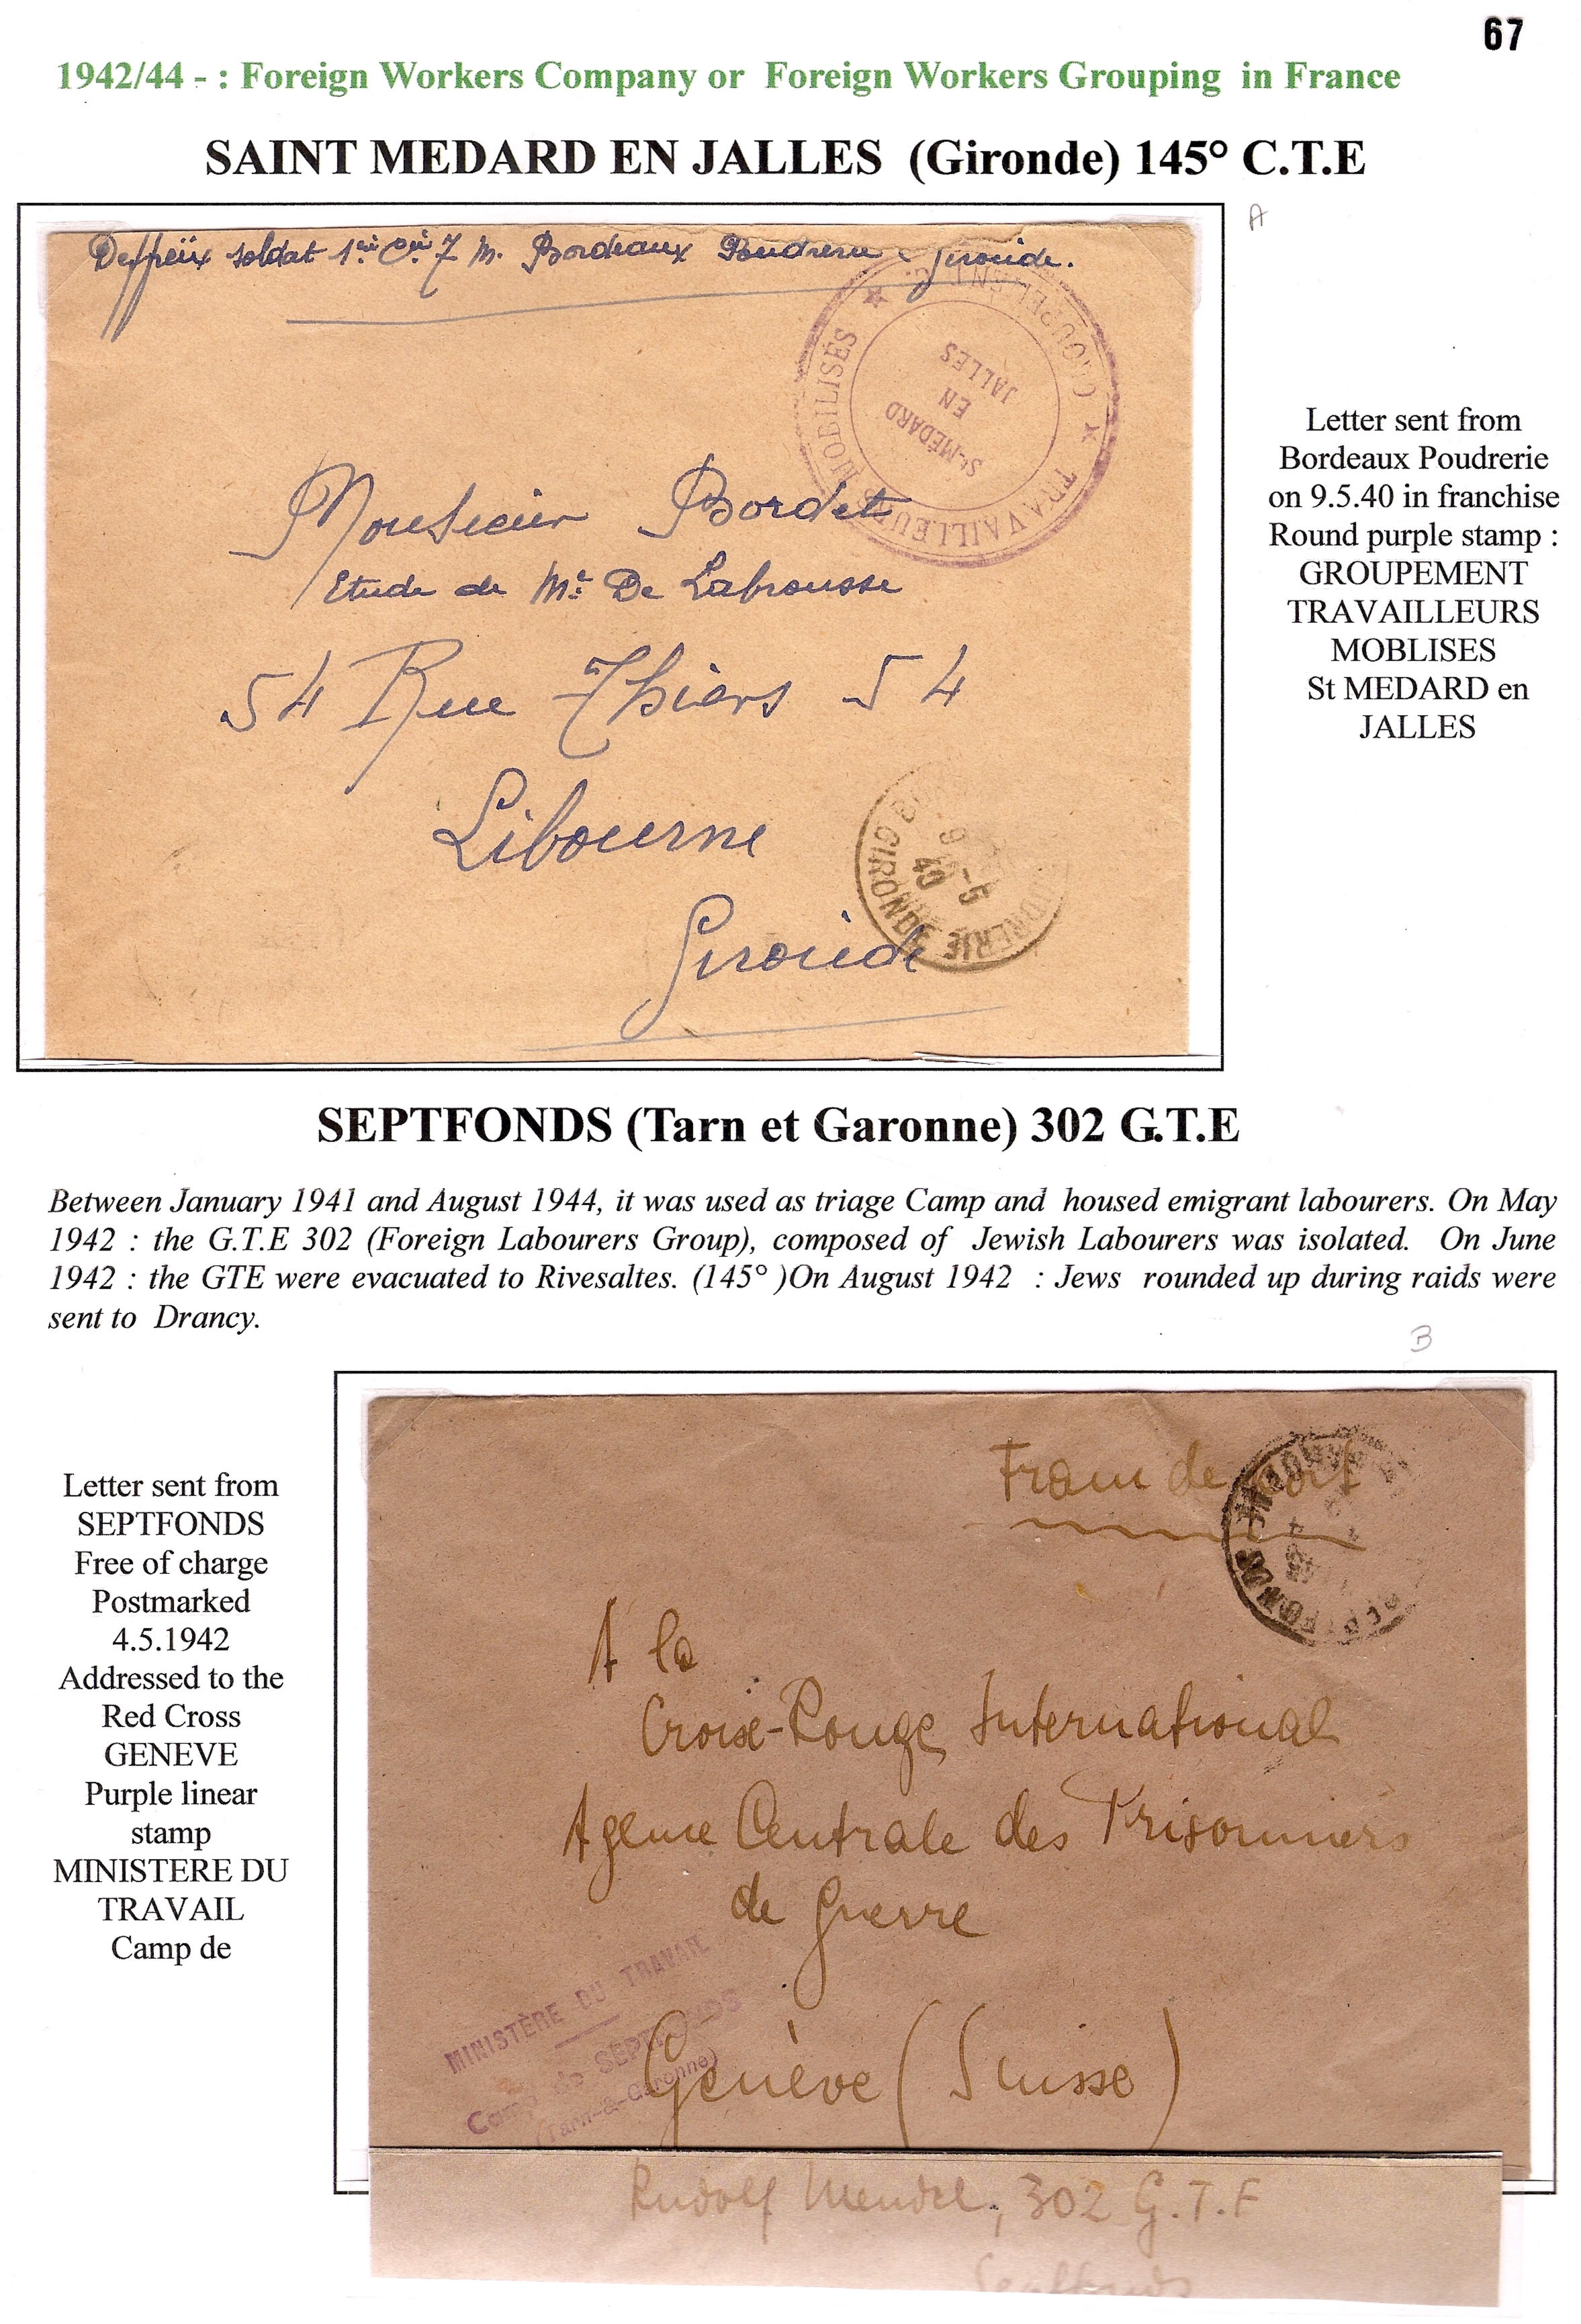 67
1942/44 - : Foreign Workers Company or Foreign Workers Grouping in France
SAINT MEDARD EN JALLES (Gironde) 145° C.T.E
A
soldat 1ère Cie 7 M. Bordeaux Poudrerie Gironde.
GROUPEMENT
TRAVAILLEURS MOBILISÉS
St-MEDARD
EN
JALLES
Monsieur Bordet
Etude de Me De Labrousse
54 Rue Thiers 54
Libourne
Gironde
9-5
40
GIRONDE
Letter sent from
Bordeaux Poudrerie
on 9.5.40 in franchise
Round purple stamp :
GROUPEMENT
TRAVAILLEURS
MOBLISES
St MEDARD en
JALLES
SEPTFONDS (Tarn et Garonne) 302 G.T.E
Between January 1941 and August 1944, it was used as triage Camp and housed emigrant labourers. On May
1942 : the G.T.E 302 (Foreign Labourers Group), composed of Jewish Labourers was isolated. On June
1942 : the GTE were evacuated to Rivesaltes. (145° )On August 1942 : Jews rounded up during raids were
sent to Drancy.
B
Letter sent from
SEPTFONDS
Free of charge
Postmarked
4.5.1942
Addressed to the
Red Cross
GENEVE
Purple linear
stamp
MINISTERE DU
TRAVAIL
Camp de
Franc de port
SEPTFONDS
A la
Croix-Rouge International
Agence Centrale des Prisonniers
de Guerre
Genève (Suisse)
MINISTÈRE DU TRAVAIL
Camp de SEPTFONDS
(Tarn-&-Garonne)
Rudolf Mendel, 302 G.T.E
Septfonds